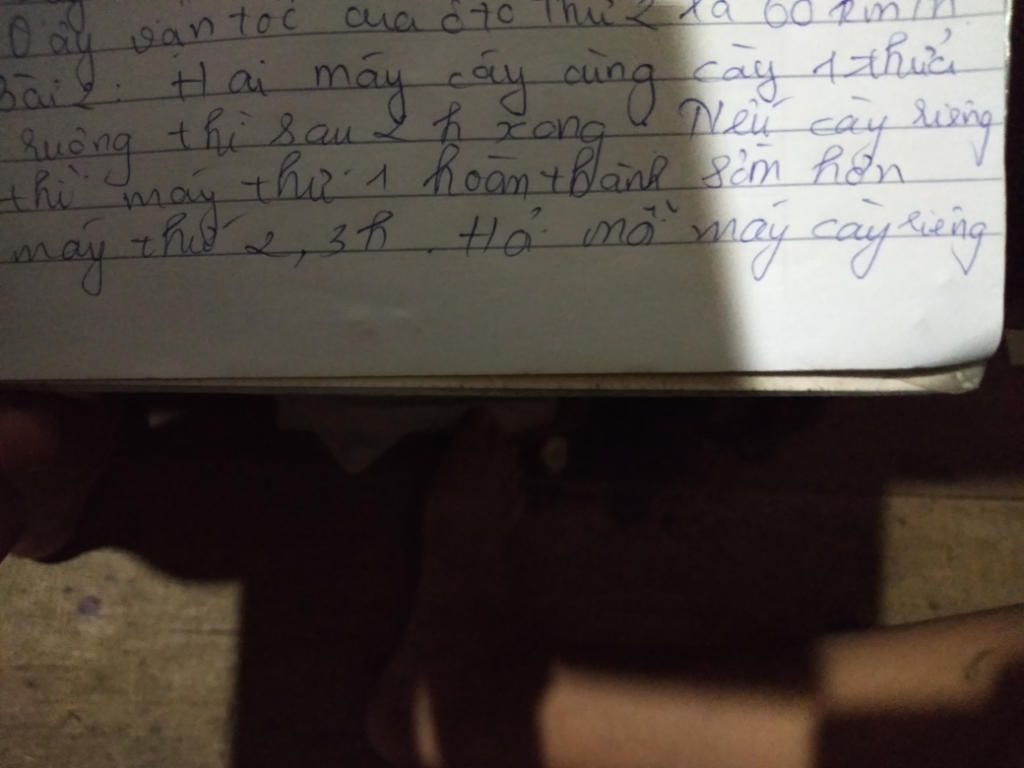 Dậy vận tốc của ôtô thứ 2 là 60 km/h
Bài 2: Hai máy cáy cùng cày 1 thửa
ruộng thì sau 2 h xong. Nếu cày riêng
thì máy thứ 1 hoàn thành sớm hơn
máy thứ 2, 3h. Hỏi mỗi máy cày riêng